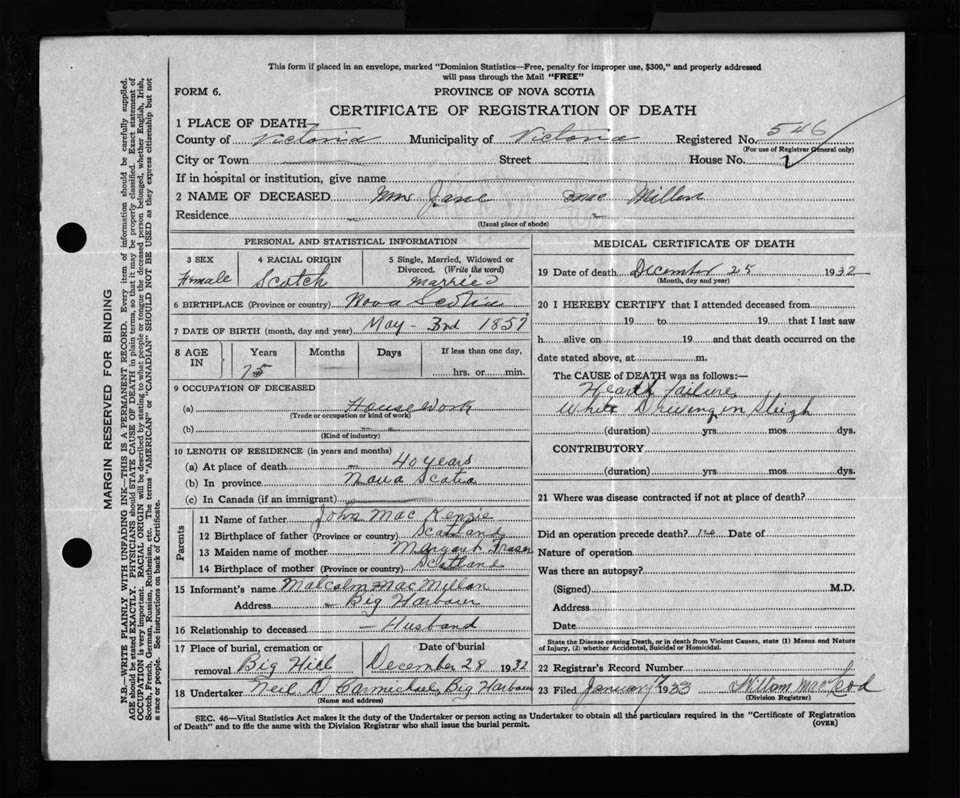 This form if placed in an envelope, marked "Dominion Statistics—Free, penalty for improper use, $300," and properly addressed
will pass through the Mail "FREE"
FORM 6. PROVINCE OF NOVA SCOTIA
CERTIFICATE OF REGISTRATION OF DEATH
1 PLACE OF DEATH
County of Victoria Municipality of Victoria Registered No. 546
(For use of Registrar General only)
City or Town Street House No.
If in hospital or institution, give name
2 NAME OF DECEASED Mrs Jane Mac Millan
Residence
(Usual place of abode)
PERSONAL AND STATISTICAL INFORMATION
3 SEX 4 RACIAL ORIGIN 5 Single, Married, Widowed or
Divorced. (Write the word)
Female Scotch married
6 BIRTHPLACE (Province or country) Nova Scotia
7 DATE OF BIRTH (month, day and year) May - 3rd 1857
8 AGE IN Years Months Days If less than one day,
75 hrs. or min.
9 OCCUPATION OF DECEASED
(a) House Work
(Trade or occupation or kind of work)
(b)
(Kind of industry)
10 LENGTH OF RESIDENCE (in years and months)
(a) At place of death 40 years
(b) In province Nova Scotia
(c) In Canada (if an immigrant)
Parents
11 Name of father John Mac Kenzie
12 Birthplace of father (Province or country) Scatland
13 Maiden name of mother Margaret Fraser
14 Birthplace of mother (Province or country) Scatland
15 Informant's name Malcolm MacMillan
Address Big Harbour
16 Relationship to deceased — Husband
17 Place of burial, cremation or Date of burial
removal Big Hill December 28 1932
18 Undertaker Neil D Carmichael, Big Harbour
(Name and address)
MEDICAL CERTIFICATE OF DEATH
19 Date of death December 25 1932
(Month, day and year)
20 I HEREBY CERTIFY that I attended deceased from
19 to 19 that I last saw
h alive on 19 and that death occurred on the
date stated above, at m.
The CAUSE of DEATH was as follows:—
Heart failure
While Driving in Sleigh
(duration) yrs. mos dys.
CONTRIBUTORY
(duration) yrs. mos dys.
21 Where was disease contracted if not at place of death?
Did an operation precede death? no Date of
Nature of operation
Was there an autopsy?
(Signed) M.D.
Address
Date
State the Disease causing Death, or in death from Violent Causes, state (1) Means and Nature
of Injury, (2) whether Accidental, Suicidal or Homicidal.
22 Registrar's Record Number
23 Filed January 7 1933 William MacLeod
(Division Registrar)
SEC. 46—Vital Statistics Act makes it the duty of the Undertaker or person acting as Undertaker to obtain all the particulars required in the "Certificate of Registration
of Death" and to file the same with the Division Registrar who shall issue the burial permit. (OVER)
MARGIN RESERVED FOR BINDING
N.B.—WRITE PLAINLY WITH UNFADING INK—THIS IS A PERMANENT RECORD. Every item of information should be carefully supplied.
AGE should be stated EXACTLY. PHYSICIANS should STATE CAUSE OF DEATH in plain terms, so that it may be properly classified. Exact statement of
OCCUPATION is very important. RACIAL ORIGIN will be described by stating to what people or tongue the deceased person belonged, whether English, Irish,
Scotch, French, German, Russian, Ruthenian, etc. The terms "AMERICAN" or "CANADIAN" SHOULD NOT BE USED as they express citizenship but not
a race or people. See instructions on back of Certificate.